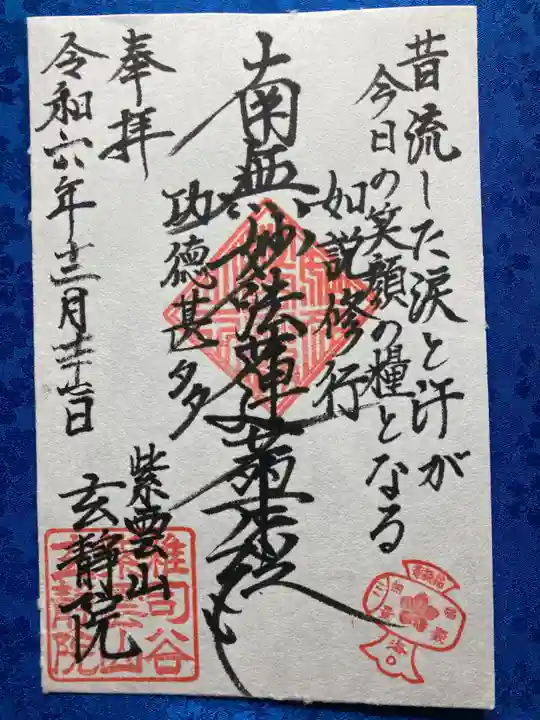 昔流した涙と汗が
今日の笑顔の糧となる
如説修行
南無妙法蓮華経
功徳甚多
奉拝
令和六年十二月
紫雲山
玄静院
雑司谷
紫雲山
玄静院